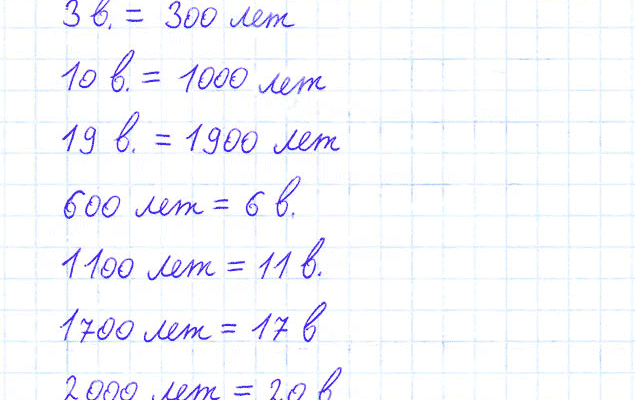 3 в. = 300 лет
10 в. = 1000 лет
19 в. = 1900 лет
600 лет = 6 в.
1100 лет = 11 в.
1700 лет = 17 в
2000 лет = 20 в